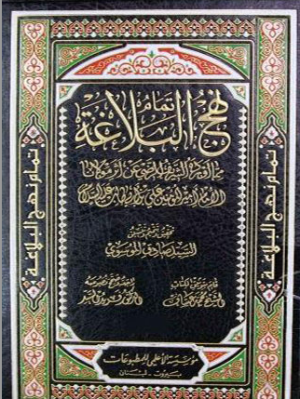 تمام
نهج البلاغة
مما أورده الشريف الرضي عن أثر مولانا
الإمام أمير المؤمنين علي بن أبي طالب عليه السلام
تحقيق وتتميم وتنسيق
السيد صادق الموسوي
مؤسسة الأعلمي للمطبوعات
بيروت - لبنان
تمام نهج البلاغة
تمام نهج البلاغة